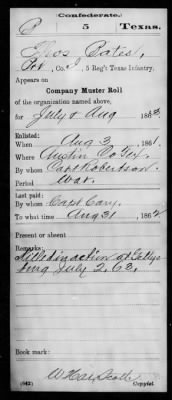 Confederate.
P 5 Texas.
Bates,
Pvt, Co. I, 5 Reg't Texas Infantry.
Appears on
Company Muster Roll
of the organization named above,
for July & Aug, 1863.
Enlisted:
When Aug 3, 1861.
Where Austin Co Tex.
By whom Capt Robertson
Period War.
Last paid:
By whom Capt Cary.
To what time Aug 31, 1862
Present or absent
Remarks:
Killed in action at Gettys
burg July 2, 63.
Book mark:
(642) Copyist.